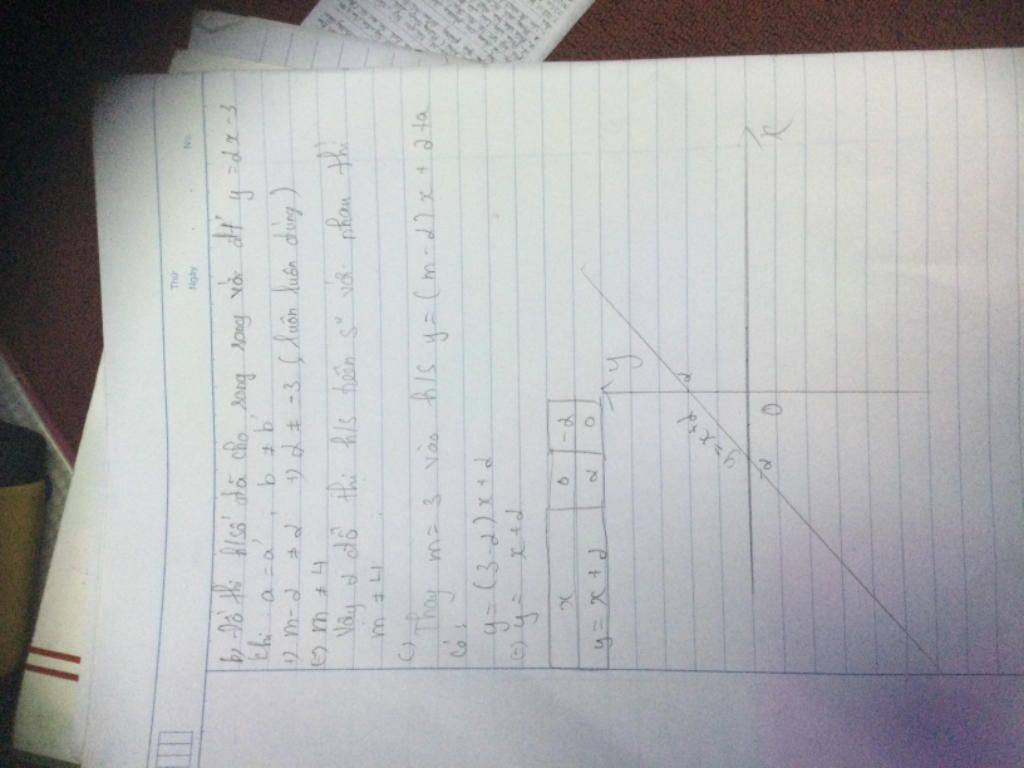 Thứ
Ngày
No.
b, Đồ thị h/số đã cho song song với đt' y = 2x - 3
khi a = a' b ≠ b'
m - 2 ≠ 2 2 ≠ -3 (luôn luôn đúng)
(=) m ≠ 4
Vậy 2 đồ thị h/s trên s² với nhau thì
m ≠ 4
c) Thay m = 3 vào h/s y = (m - 2) x + 2 ta
Có:
y = (3 - 2) x + 2
(=) y = x + 2
x 0 -2
y = x + 2 2 0
y
2
y = x + 2
-2
0
x